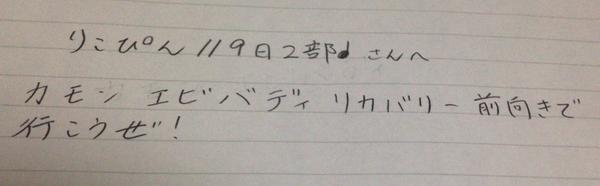 りこぴん119日2部♩さんへ
カモン エビバディ リカバリー 前向きで
行こうぜ!